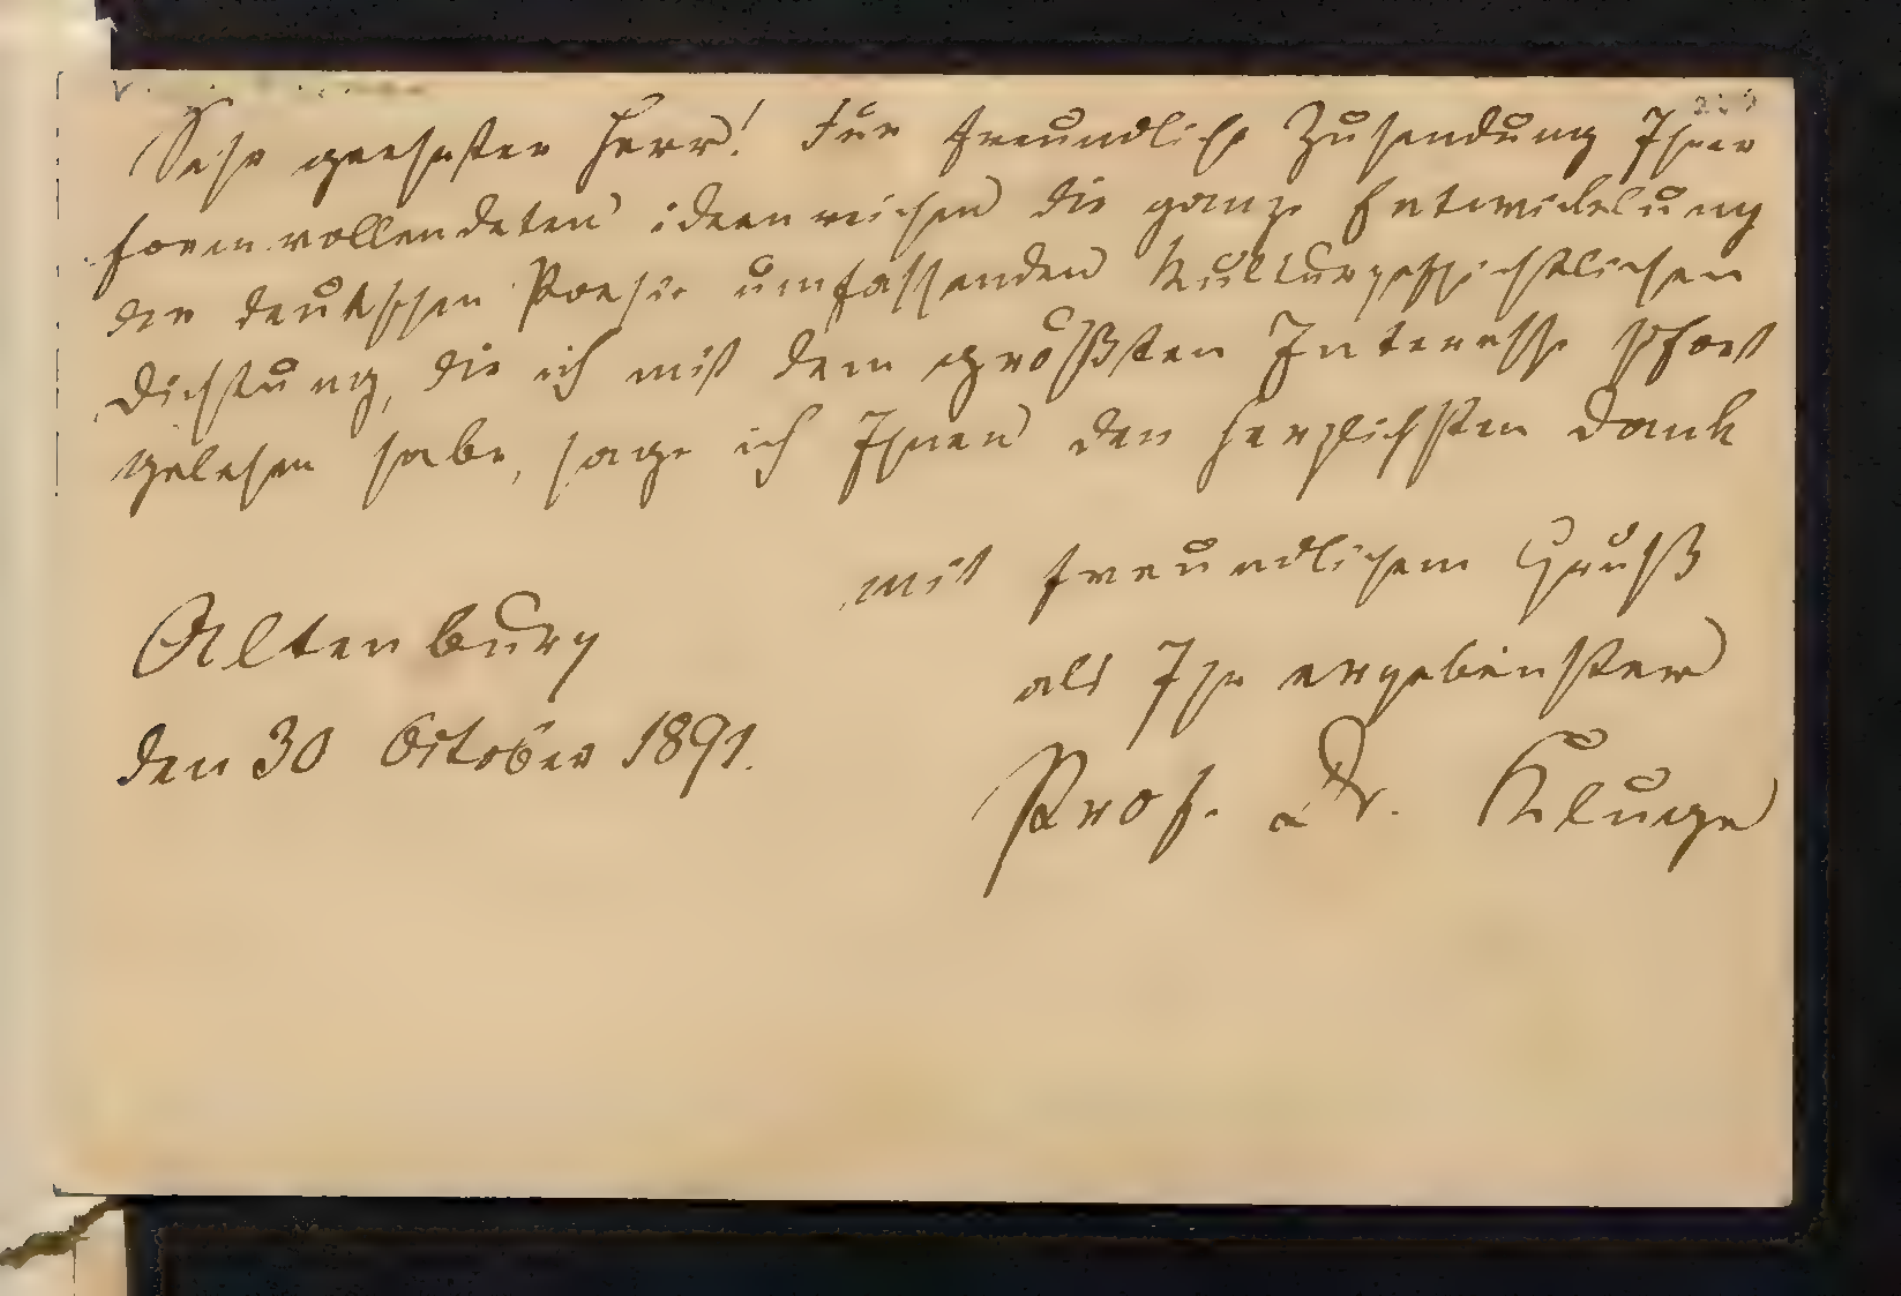 Sehr geehrter Herr! Für freundliche Zusendung Ihrer
formvollendeten ideenreichen die ganze Entwickelung
der deutschen Poesie umfassenden kulturgeschichtlichen
Dichtung, die ich mit dem größten Interesse sofort
gelesen habe, sage ich Ihnen den herzlichsten Dank
mit freundlichem Gruß
als Ihr ergebenster
Altenburg
den 30 October 1891.
Prof. Dr. Kluge